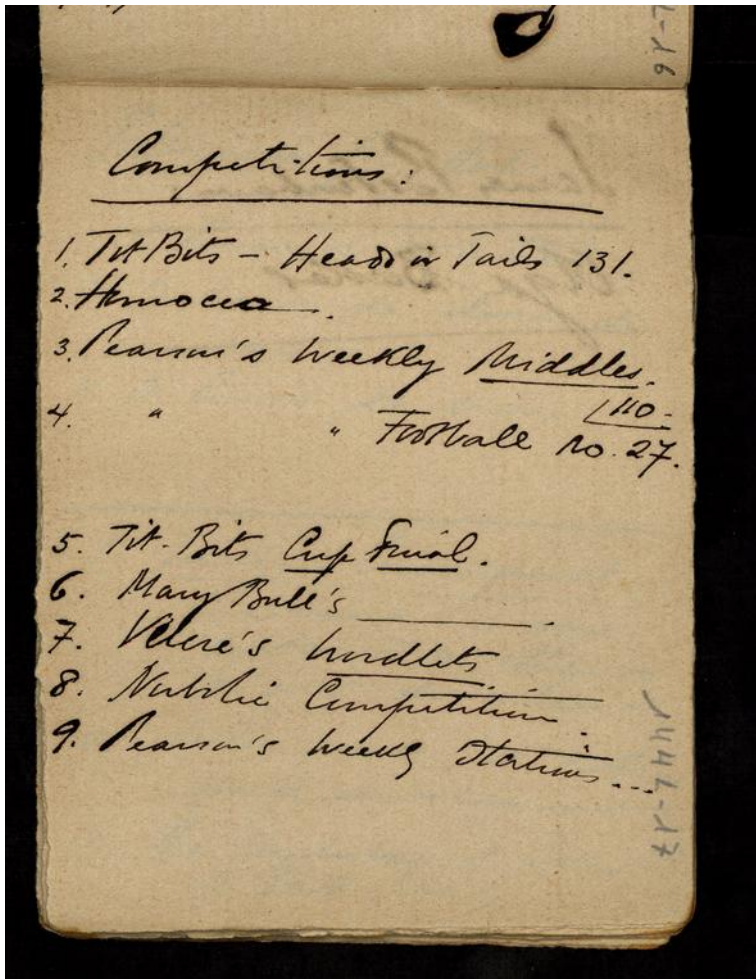 Competitions:
1. Tit Bits - Heads or Tails 131.
2.
3. Pearson's Weekly Middles.
110.
4. " " Football No. 27.
5. Tit-Bits Cup Final.
6. Mary Bull's
7. Wordlets
8. Competition.
9. Pearson's Weekly Stations...